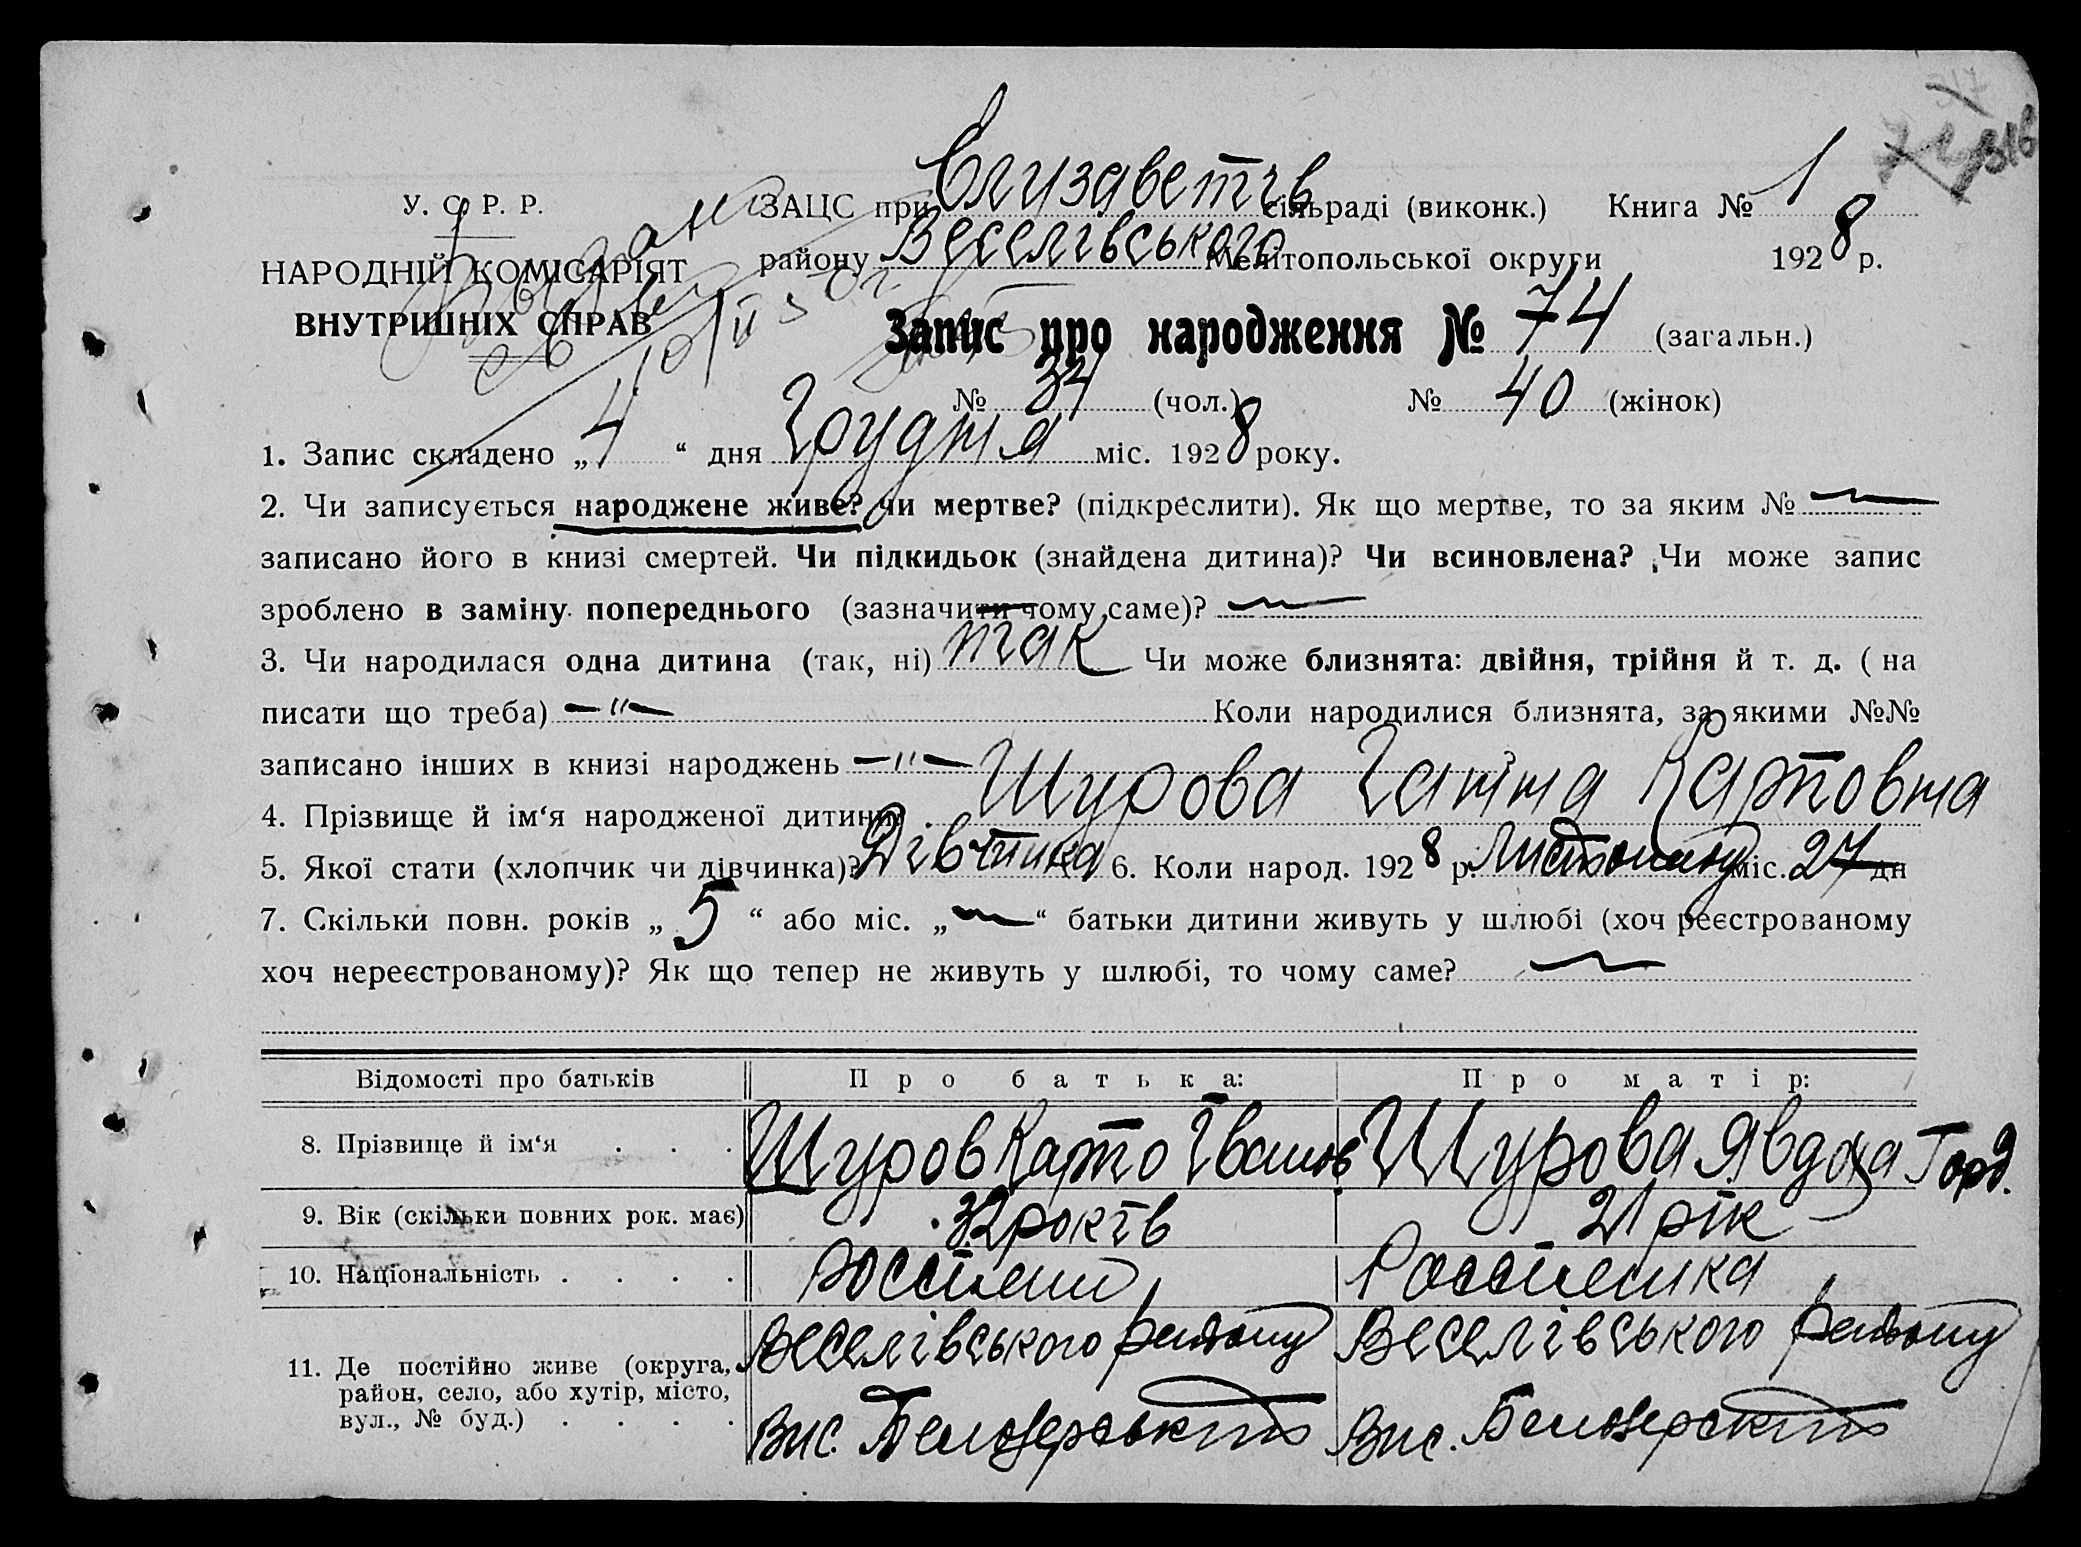 У. С. Р. Р.
НАРОДНІЙ КОМІСАРІЯТ
ВНУТРИШНІХ СПРАВ
ЗАЦС при Єлизаветів сільраді (виконк.) Книга № 1
району Веселівського Мелітопольської округи 1928 р.
Запис про народження № 74 (загальн.)
№ 34 (чол.) № 40 (жінок)
1. Запис складено „4“ дня Грудня міс. 1928 року.
2. Чи записується народжене живе? чи мертве? (підкреслити). Як що мертве, то за яким №
записано його в книзі смертей. Чи підкидьок (знайдена дитина)? Чи всиновлена? Чи може запис
зроблено в заміну попереднього (зазначити чому саме)?
3. Чи народилася одна дитина (так, ні) так Чи може близнята: двійня, трійня й т. д. (на
писати що треба) —"— Коли народилися близнята, за якими №№
записано інших в книзі народжень —"—
4. Прізвище й ім‘я народженої дитини Шурова Ганна Карповна
5. Якої стати (хлопчик чи дівчинка)? Дівчинка 6. Коли народ. 1928 р. Листопаду міс. 27 дн
7. Скільки повн. років „5“ або міс. „—“ батьки дитини живуть у шлюбі (хоч реєстрованому
хоч нереєстрованому)? Як що тепер не живуть у шлюбі, то чому саме?
Відомості про батьків Про батька: Про матір:
8. Прізвище й ім‘я . . . Шуров Карпо Іванов Шурова Явдоха Горд.
9. Вік (скільки повних рок. має) 32 років 21 рік
10. Національність . . . . Россіянин Россіянка
11. Де постійно живе (округа, район, село, або хутір, місто, вул., № буд.) . . . .
Веселівського району Веселівського району
Вис. Вис.